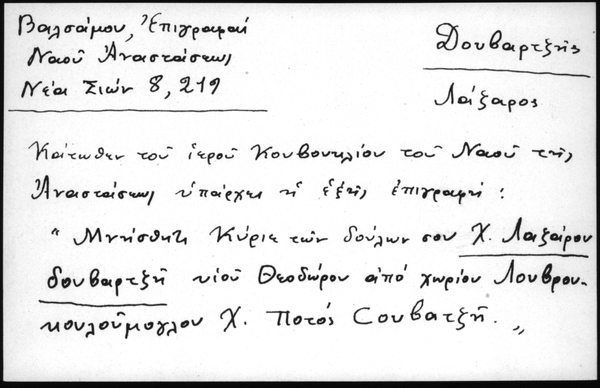 Βαλσάμου, Ἐπιγραφαί
Ναοῦ Ἀναστάσεως
Νέα Σιών 8, 219
Δουβαρτζῆς
Λάζαρος
Κάτωθεν τοῦ ἱεροῦ Κουβουκλίου τοῦ Ναοῦ τῆς
Ἀναστάσεως ὑπάρχει ἡ ἑξῆς ἐπιγραφή :
"Μνήσθητι Κύριε τῶν δούλων σου Χ. Λαζάρου
δουβαρτζῆ υἱοῦ Θεοδώρου ἀπό χωρίον Λουβρου-
κουλούμογλου Χ. Ποτός Σουβατζῆ."